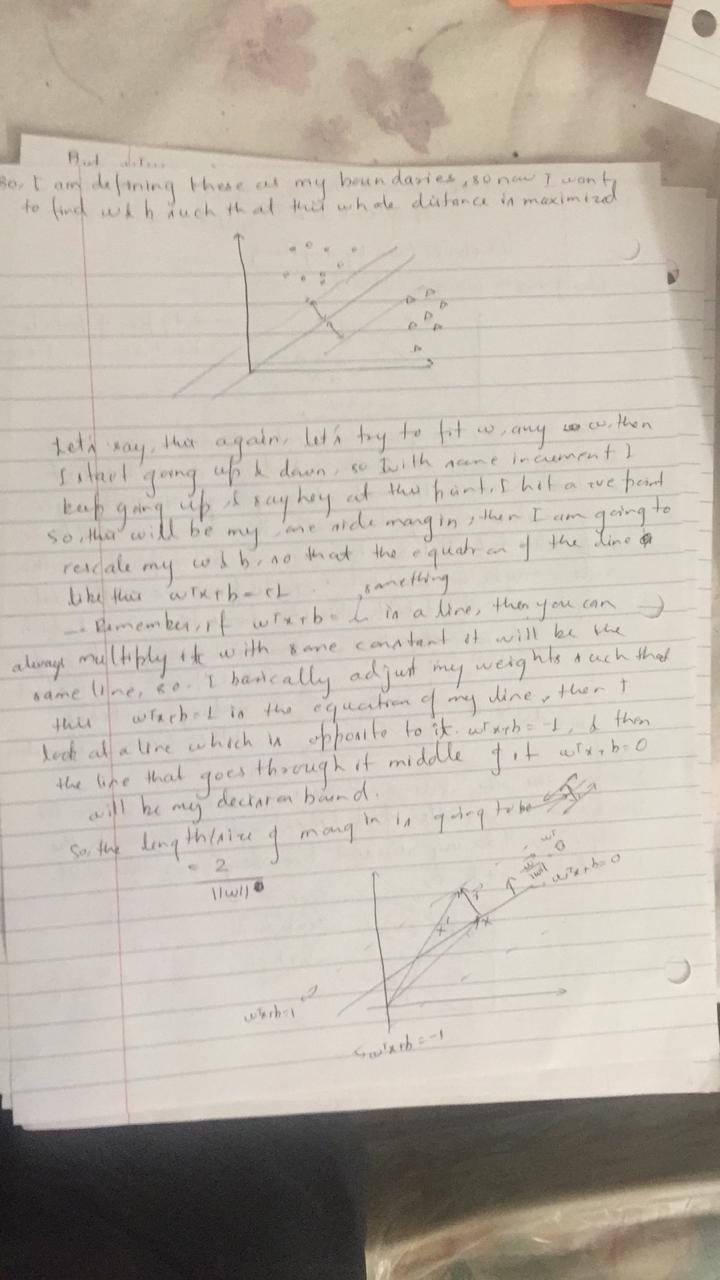 But
So, I am defining these as my boundaries, so now I want
to find w & b such that this whole distance is maximized
Let's say, that again, let's try to fit w, any w, then
I start going up & down, so with some increment I
keep going up, & say hey at this point, I hit a +ve point
so, that will be my one side margin, then I am going to
rescale my w & b, so that the equation of the line is
like this wᵀx+b = c1
something
→ Remember, if wᵀx+b = in a line, then you can →
always multiply it with some constant it will be the
same line, so I basically adjust my weights such that
this wᵀx+b=1 is the equation of my line, then I
look at a line which is opposite to it. wᵀx+b = -1, & then
the line that goes through it middle of it wᵀx+b=0
will be my decision bound.
So, the length/size of margin is going to be
= 2
||w||
wᵀ
w
||w||
wᵀx+b=0
x'
r
x
wᵀx+b=1
wᵀx+b = -1